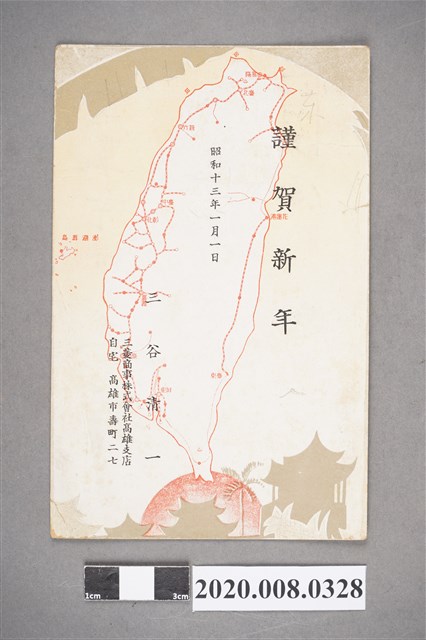 謹賀新年
昭和十三年一月一日
三谷清一
三菱商事株式會社高雄支店
自宅 高雄市壽町二七
澎湖群島
花蓮港
臺東
1cm
3cm
2020.008.0328